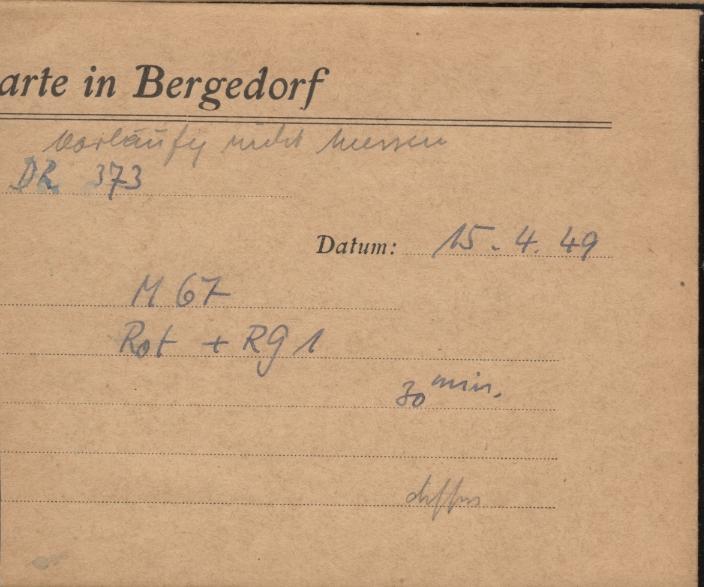 arte in Bergedorf
vorläufig nicht messen
DR 373
Datum: 15. 4. 49
M 67
Rot + RG 1
30 min.
diffus